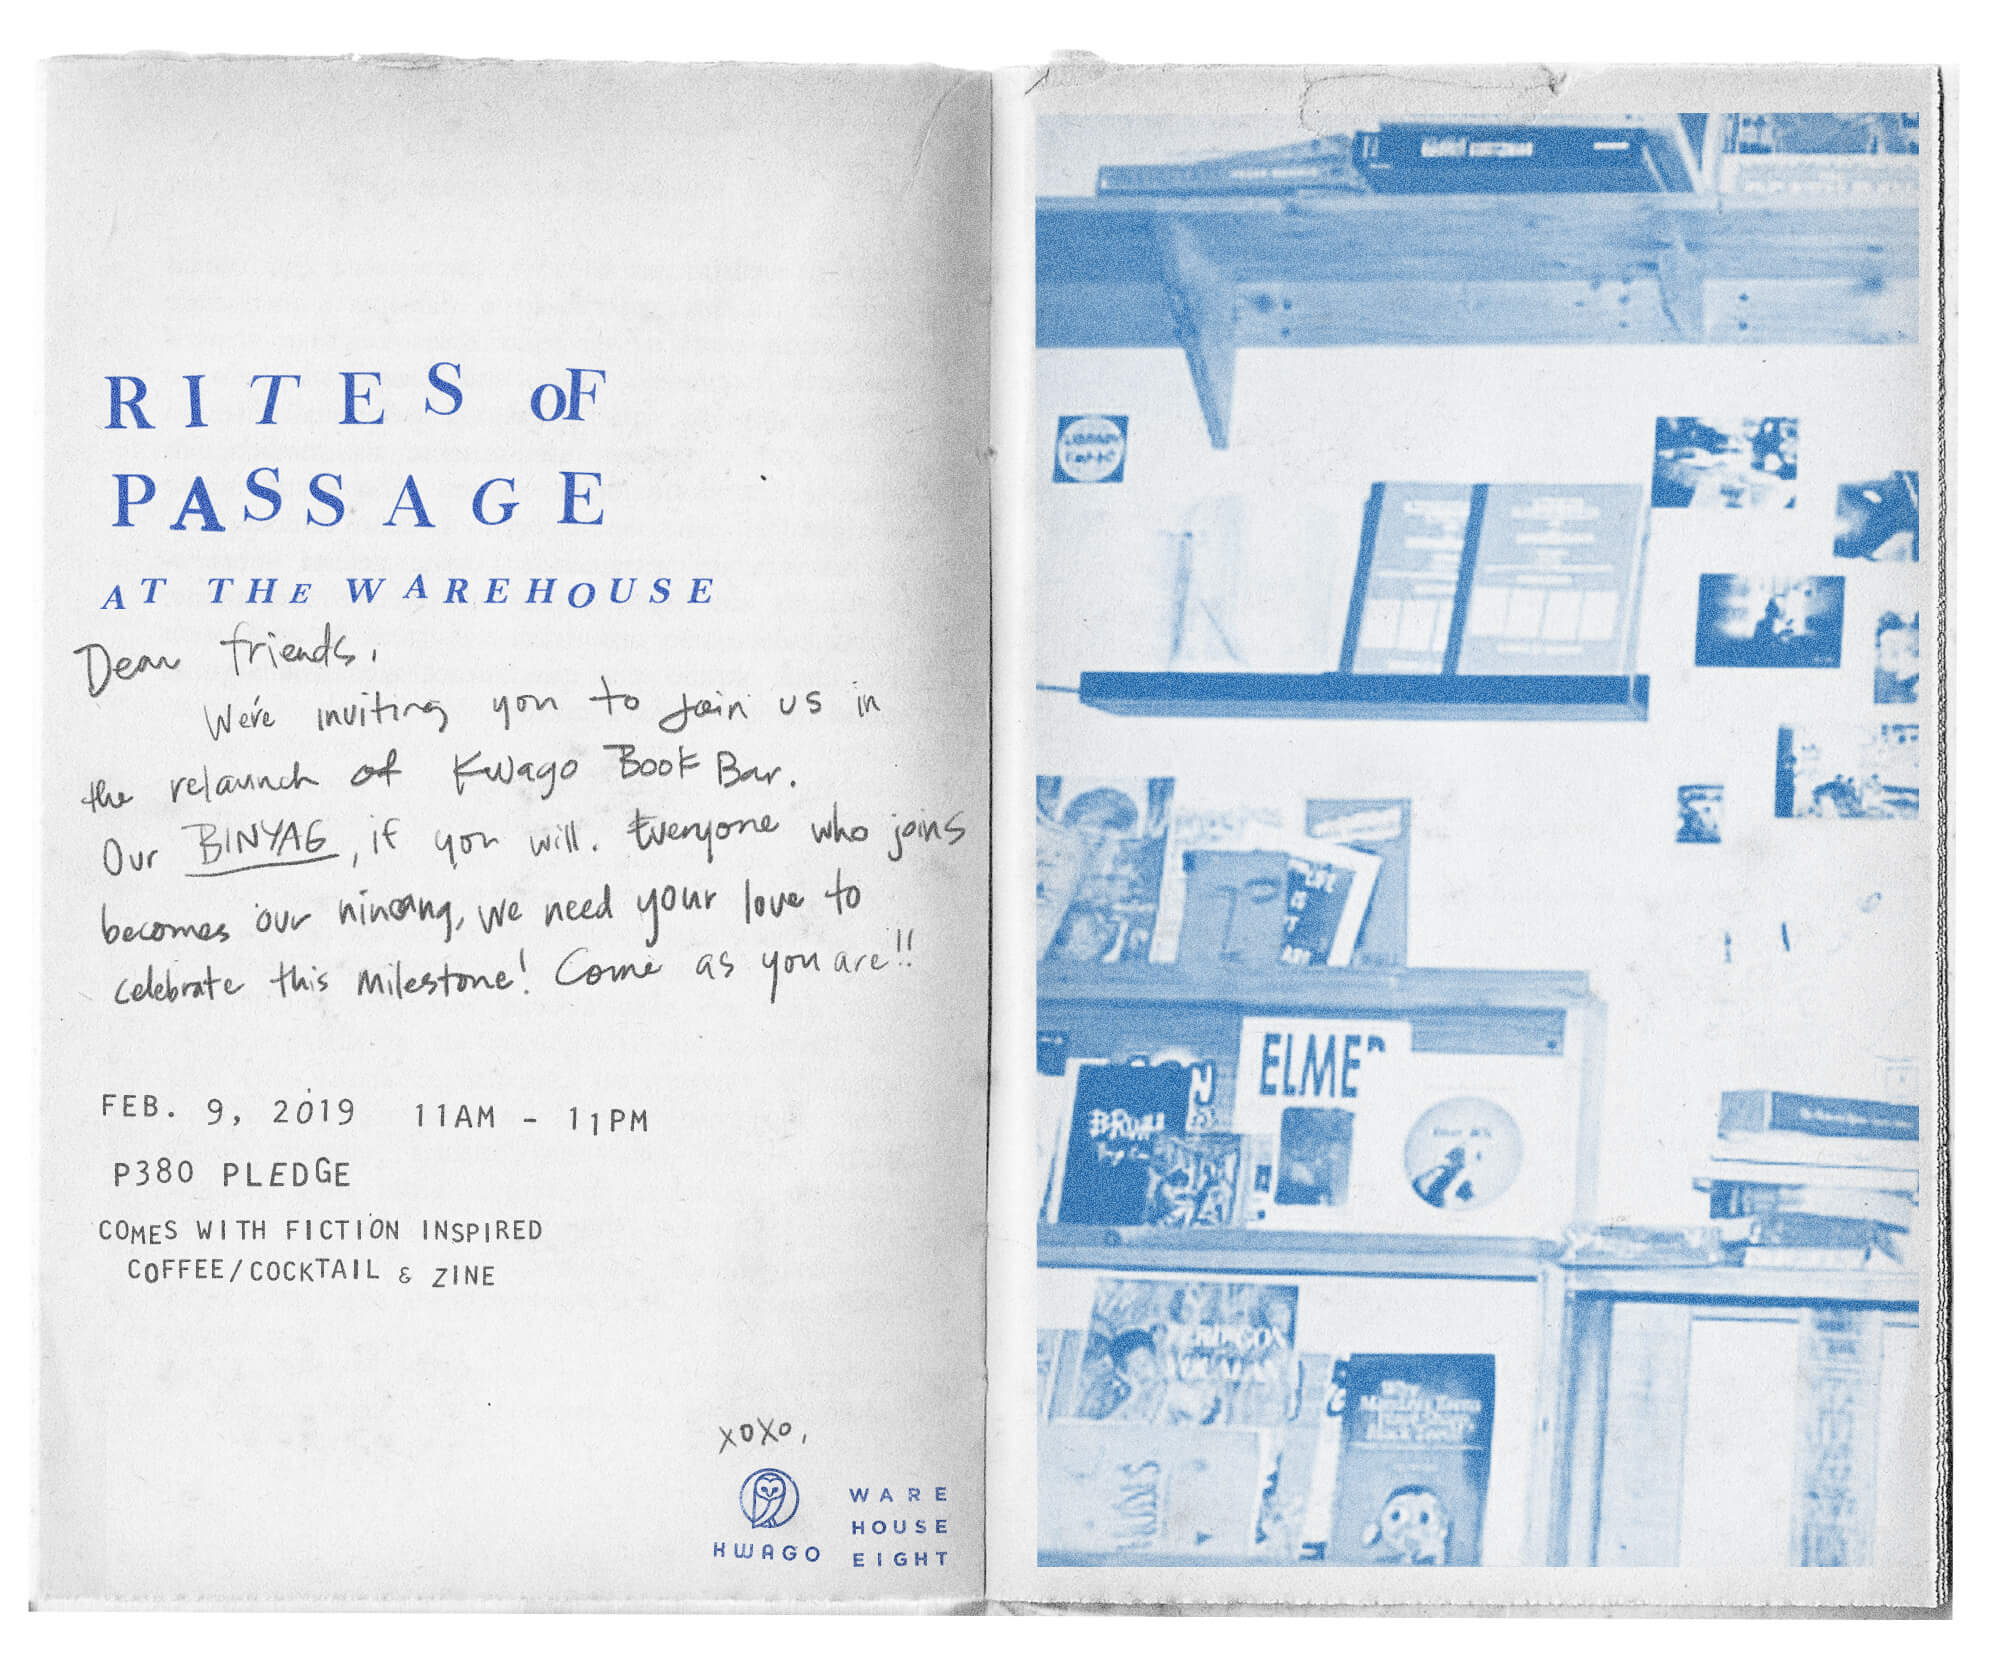 RITES OF
PASSAGE
AT THE WAREHOUSE
Dear friends,
We're inviting you to join us in
the relaunch of Kwago Book Bar.
Our BINYAG, if you will. Everyone who joins
becomes our ninang, we need your love to
celebrate this milestone! Come as you are!!
FEB. 9, 2019 11AM - 11PM
P380 PLEDGE
COMES WITH FICTION INSPIRED
COFFEE/COCKTAIL & ZINE
xoxo,
KWAGO
WARE
HOUSE
EIGHT
LIFE
IS
ELMER